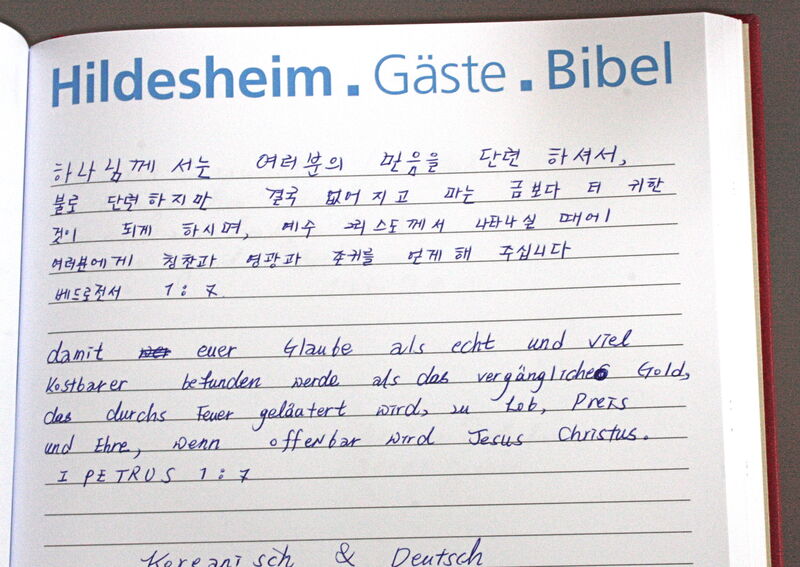 Hildesheim . Gäste . Bibel
하나님께 서는 여러분의 믿음을 단련 하셔서,
불로 단련하지만 결국 없어 지고 마는 금보다 더 귀한
것이 되게 하시며, 예수 그리스도께서 나타나실 때에
여러분에게 칭찬과 영광과 존귀를 얻게 해 주십니다
베드로전서 1:7
damit euer Glaube als echt und viel
kostbarer befunden werde als das vergängliche Gold,
das durchs Feuer geläutert wird, zu Lob, Preis
und Ehre, wenn offenbar wird Jesus Christus.
I PETRUS 1:7
Koreanisch & Deutsch